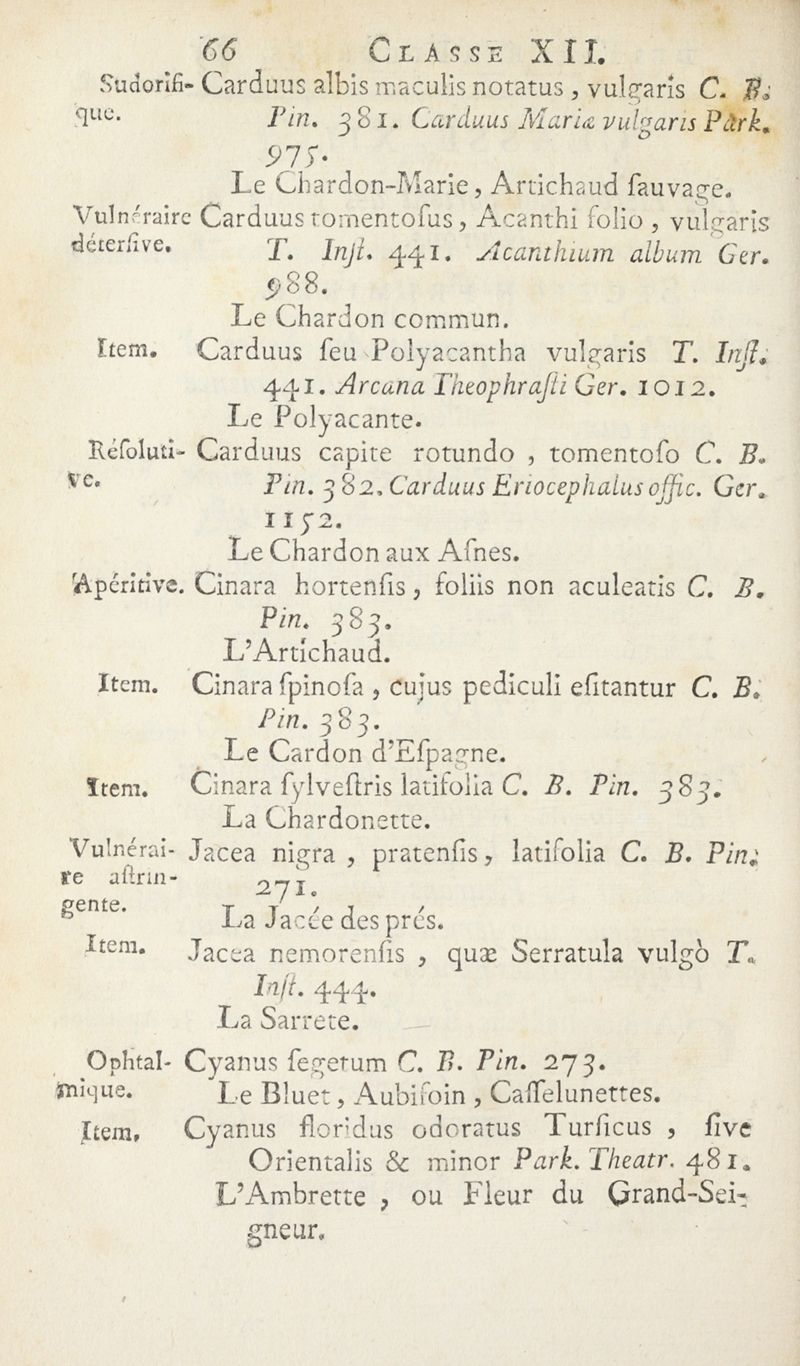 66 CLASSE XII.
Sudorifi- Carduus albis maculis notatus, vulgaris C. B.
que. Pin. 381. Carduus Mariæ vulgaris Park.
975.
Le Chardon-Marie, Artichaud ſauvage.
Vulnéraire Carduus tomentoſus, Acanthi folio, vulgaris
déterſive. T. Inſt. 441. Acanthium album Ger.
988.
Le Chardon commun.
Item. Carduus ſeu Polyacantha vulgaris T. Inſt.
441. Arcana Theophraſti Ger. 1012.
Le Polyacante.
Réſoluti- Carduus capite rotundo, tomentoſo C. B.
ve. Pin. 382. Carduus Eriocephalus offic. Ger.
1152.
Le Chardon aux Aſnes.
Apéritive. Cinara hortenſis, foliis non aculeatis C. B.
Pin. 383.
L'Artichaud.
Item. Cinara ſpinoſa, cujus pediculi eſitantur C. B.
Pin. 383.
Le Cardon d'Eſpagne.
Item. Cinara ſylveſtris latifolia C. B. Pin. 383.
La Chardonette.
Vulnérai- Jacea nigra, pratenſis, latifolia C. B. Pin.
re aſtrin- 271.
gente. La Jacée des prés.
Item. Jacea nemorenſis, quæ Serratula vulgò T.
Inſt. 444.
La Sarrete.
Ophtal- Cyanus ſegetum C. B. Pin. 273.
mique. Le Bluet, Aubifoin, Caſſelunettes.
Item, Cyanus floridus odoratus Turſicus, ſive
Orientalis & minor Park. Theatr. 481.
L'Ambrette, ou Fleur du Grand-Sei-
gneur.